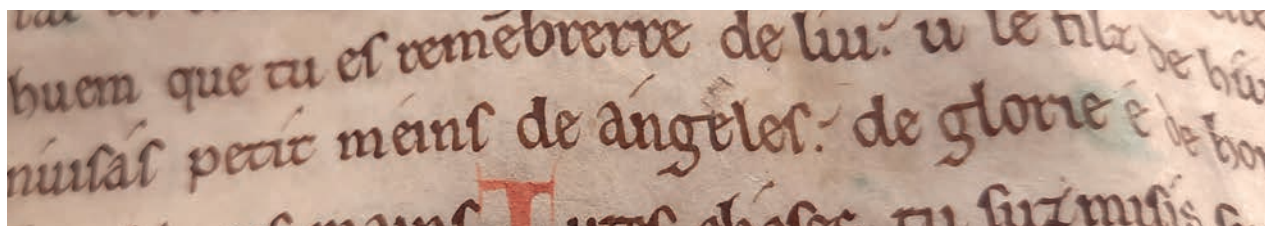 huem que tu eſ remēbrerre de lui: u le filz de hū
nuiſaſ petit meinſ de ángeleſ: de glorie é de hon
mainſ Tutes choſes tu ſuzmiſiſ